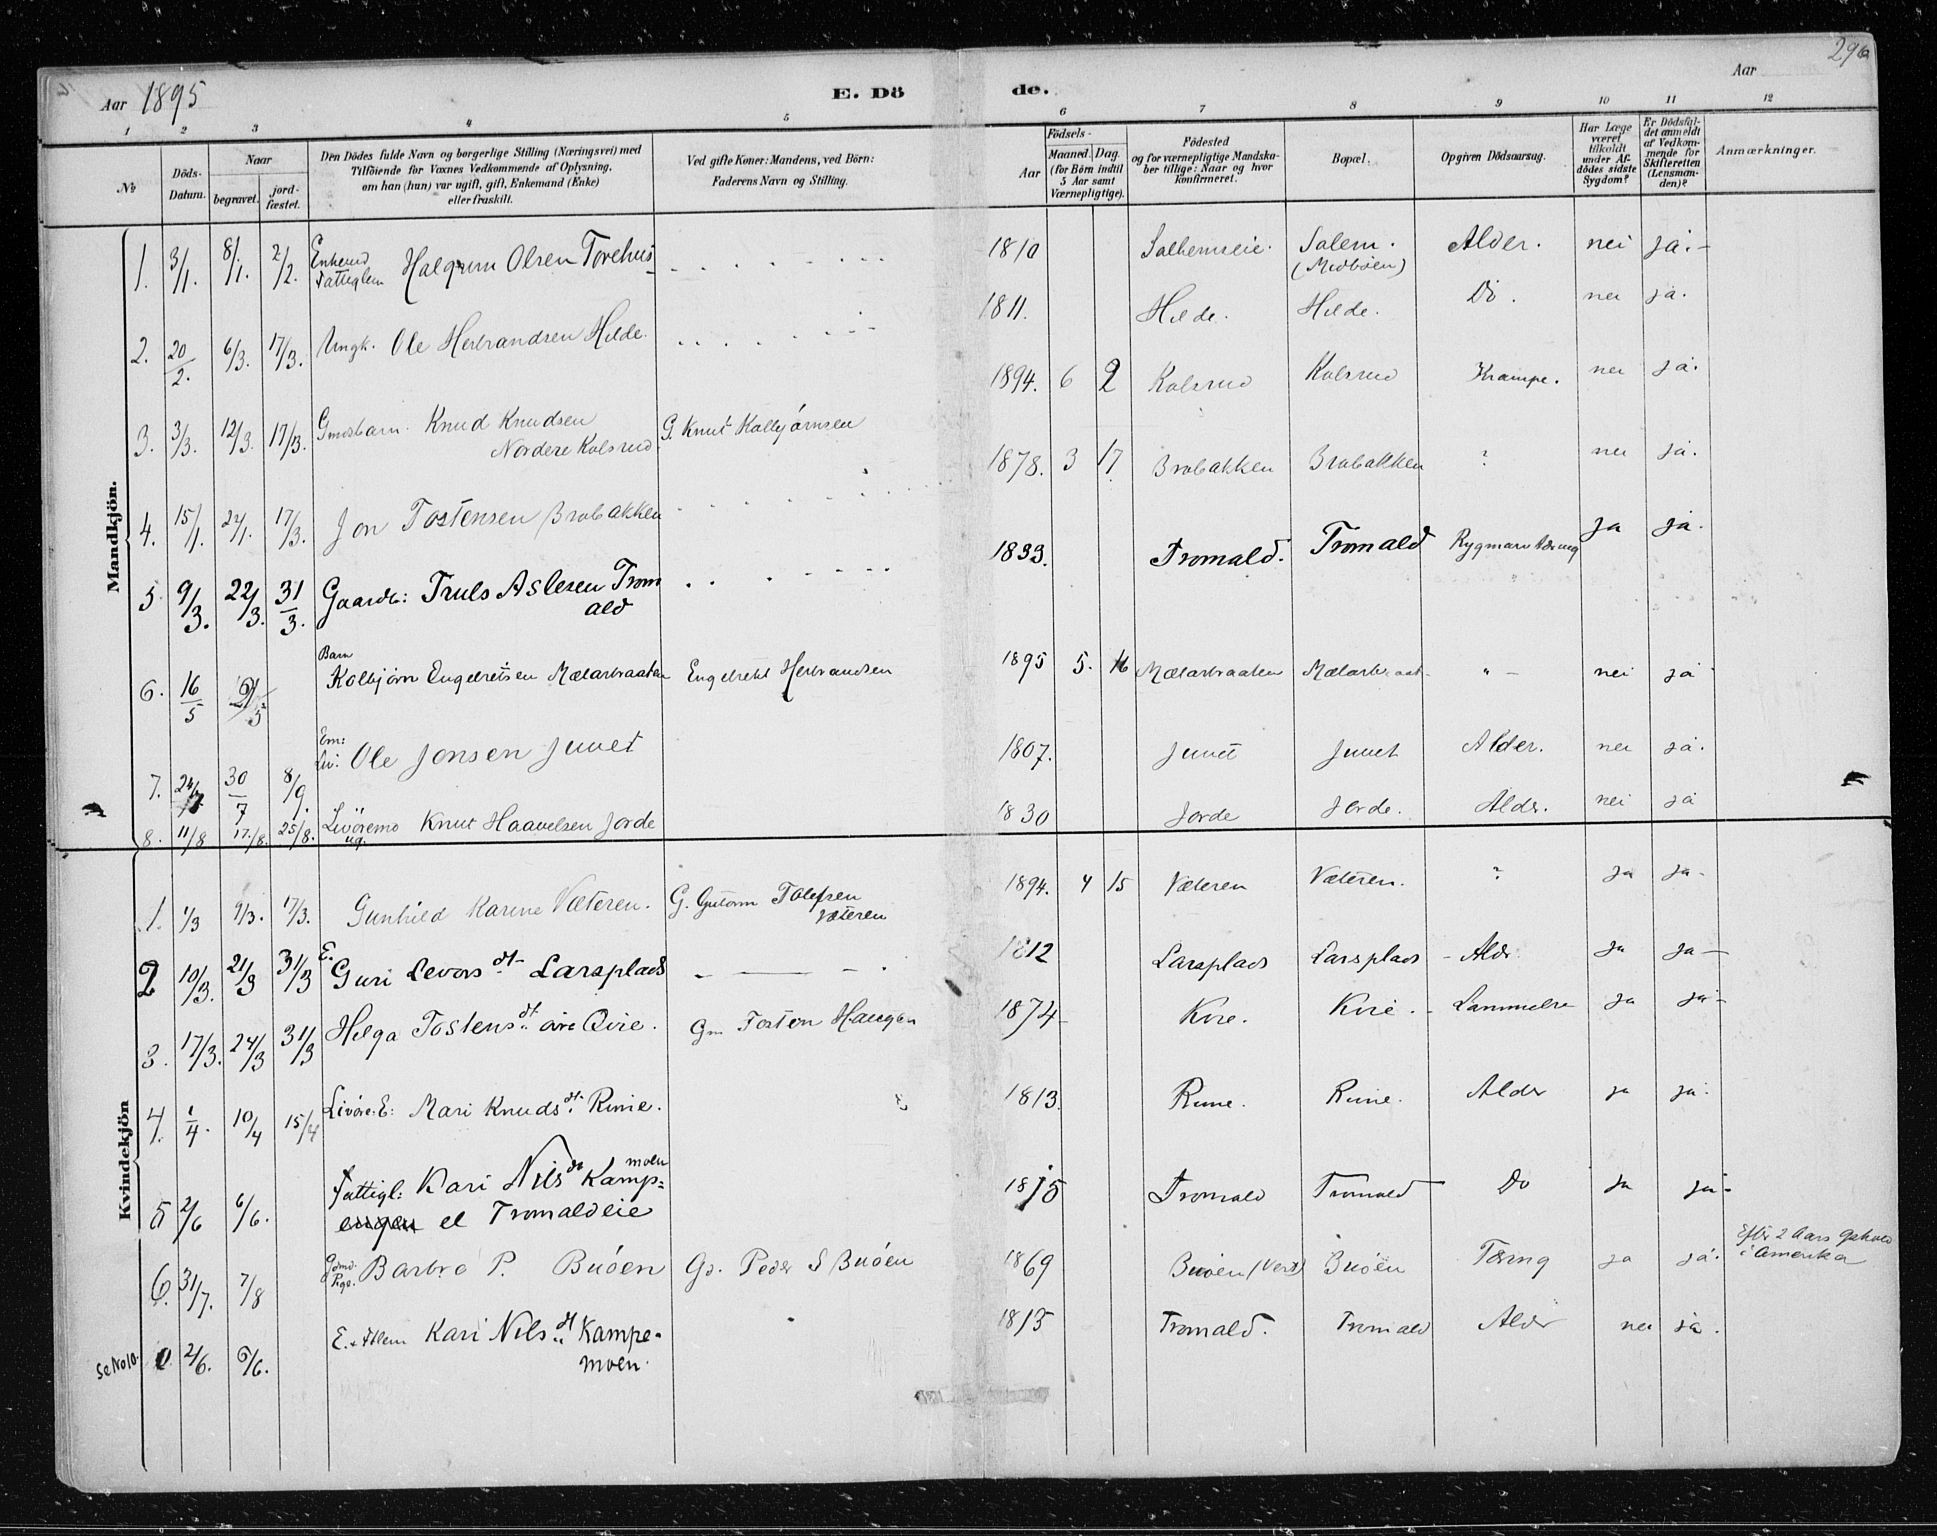 Aar 1895
E. Dö
de.
Aar
296
1 2 3 4 5 6 7 8 9 10 11 12
No
Döds-Datum.
Naar
begravet.
jord-fæstet.
Den Dödes fulde Navn og borgerlige Stilling (Næringsvei) med
Tilföiende for Voxnes Vedkommende af Oplysning,
om han (hun) var ugift, gift, Enkemand (Enke)
eller fraskilt.
Ved gifte Koner: Mandens, ved Börn:
Faderens Navn og Stilling.
Födsels-
Aar
Maaned. Dag.
(for Börn indtil
5 Aar samt
Værnepligtige).
Födested
og for værnepligtige Mandska-
ber tillige: Naar og hvor
konfirmeret.
Bopæl.
Opgiven Dödsaarsag.
Har Læge
været
tilkaldt
under Af-
dödes sidste
Sygdom?
Er Dödsfal-
det anmeldt
af Vedkom-
mende for
Skifteretten
(Lensman-
den)?
Anmærkninger.
Mandkjön.
1. 3/1. 8/1. 2/2. Enkemd Fattiglem Halgrim Olsen Torehus 1810 Salhemseie. Salem. (Medböen) Alder. nei ja.
2. 20/2. 6/3. 17/3. Ungk. Ole Herbrandsen Hilde. 1811. Hilde. Hilde. Do. nei ja.
3. 3/3. 12/3. 17/3. Gmdsbarn. Knud Knudsen
Nordere Kolsrud. G. Knut Kolbjörnsen 1894. 6 2 Kolsrud Kolsrud Krampe. nei ja.
4. 15/1. 22/1. 17/3. Jon Tostensen Brabakken 1878. 3 17. Brabakken Brabakken ? nei ja.
5 9/3. 22/3. 31/3. Gaardbr: Truls Aslesen Trom
ald 1833. Tromald. Tromald Rygmarvstæring ja ja.
6. 16/5 21/5 Barn
Kolbjörn Engebretsen Mælarbraaten Engebrekt Herbrandsen 1895 5. 16 Mælarbraaten Mælarbraat - " - nei ja
7. 24/7 30/7 8/9. Em: Liv: Ole Jonsen Juuet 1807. Juuet Juuet Alder. nei ja.
8. 11/8 17./8. 25/8. Livöremd ug. Knut Haavelsen Jorde 1830 Jorde Jorde. Alder. nei ja
Kvindekjön
1. 1/3 9/3. 17/3. Gunhild Karine Væteren. G. Gutorm Tolefsen
Væteren 1894. 4 15 Væteren Væteren. ? ja ja.
2 10/3. 21/3 31/3 E. Guri Levorsdt Larsplads 1812 Larsplads Larsplads Aldr. ja ja
3. 17/3. 24/3 31/3 Helga Tostensdt övre Qvie. Gm Tosten Haugen 1874 Kvie. Kvie. ja ja
4. 1/4. 10/4 15/4 Livöre: E: Mari Knudsdt. Rime. 1813. Rime. Rime. Alder ja ja.
5 2/6 6/6. Fattigl: Kari Nilsdt Kamp=moen
engen el Tromaldeie 1815 Tromald Tromald Do ja ja.
6. 31/7. 7/8 Gdmd. Pge. Barbro P. Buöen Gd. Peder S Buöen 1869 Buöen (Vest) Buöen Tæring ja ja. Efter 2 Aars Ophold
i Amerika
Se No 10. 2/6. 6/6. E. Flem Kari Nilsdt Kampe-
moen. 1815 Tromald. Tromald Alder nei ja.